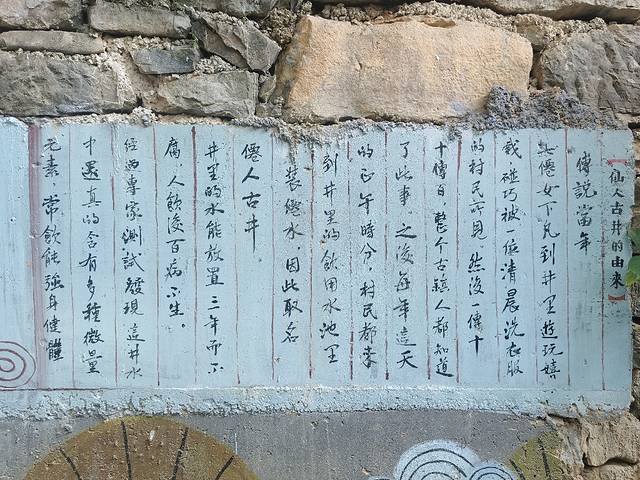 【仙人古井的由来】
傳説當年
七僊女下凡到井里遊玩嬉
戲碰巧被一位清晨洗衣服
的村民所見然後一傳十
十傳百整个古鎮人都知道
了此事。之後每年這天
的正午時分，村民都来
到井里的飲用水池里
装僊水，因此取名
僊人古井
井里的水能放置三年而不
腐，人飲後百病不生。
經西專家測試發現這井水
中還真的含有多種微量
元素，常飲能強身健體